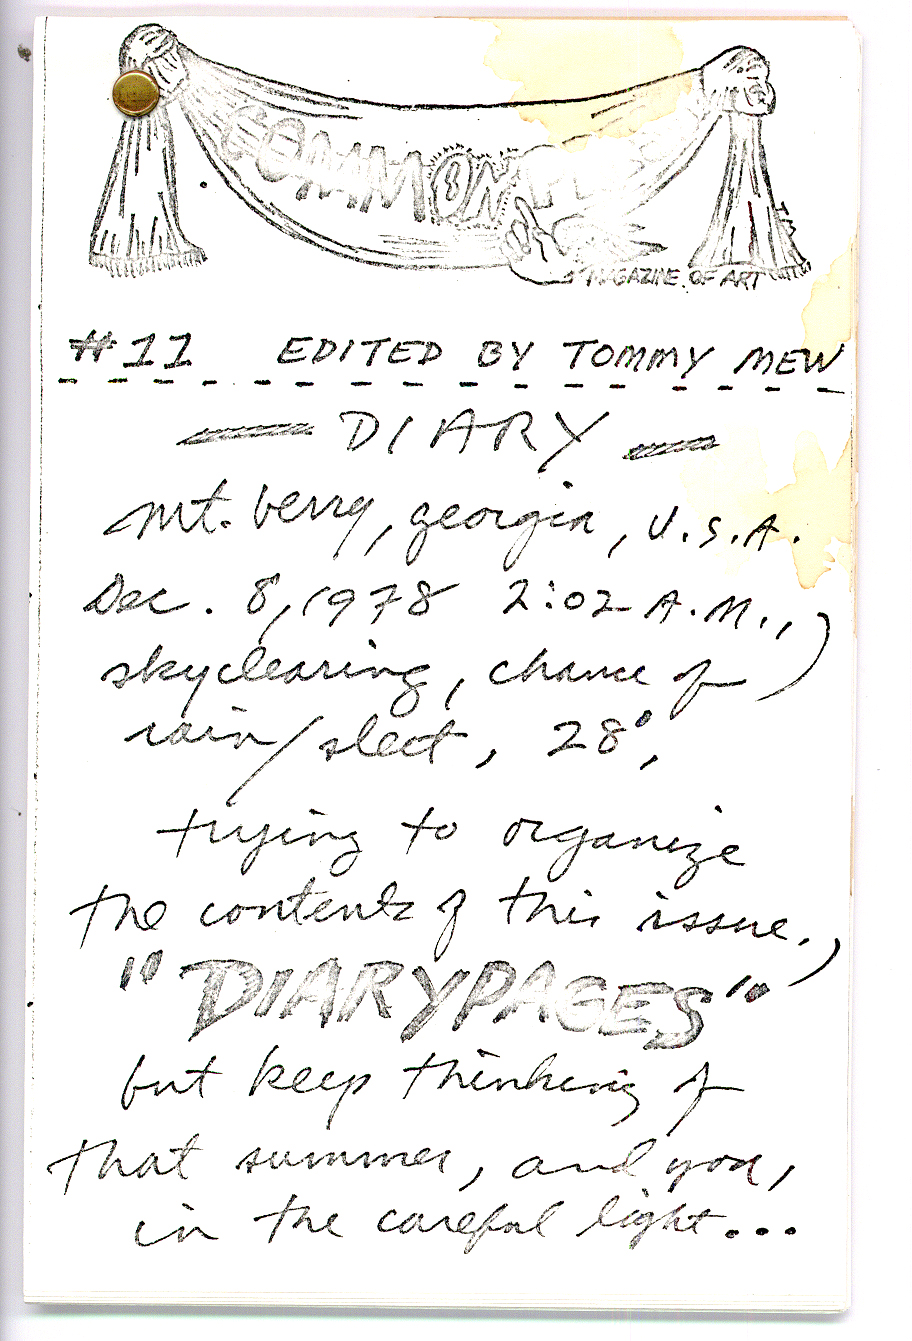 COMMON
MAGAZINE OF ART
#11 EDITED BY TOMMY MEW
DIARY
mt. berry, georgia, U.S.A.
Dec. 8, 1978 2:02 A.M.,
sky clearing, chance of
rain/sleet, 28°,
trying to organize
the contents of this issue.,
"DIARYPAGES"
but keep thinking of
that summer, and you,
in the careful light...